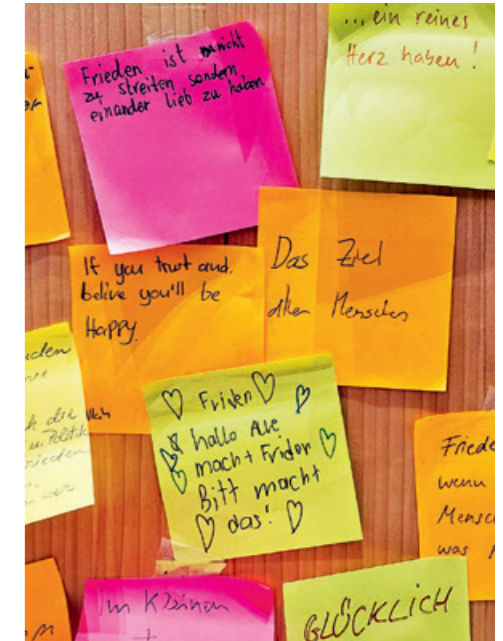 Frieden ist nicht
zu streiten sondern
einander lieb zu haben
...ein reines
Herz haben!
If you trust and
belive you'll be
Happy.
Das Ziel
aller Menschen
Friden
hallo Alle
macht Fridon
Bitt macht
das!
Friede
wenn
Mensc
was
Im Kleinen
GLÜCKLICH